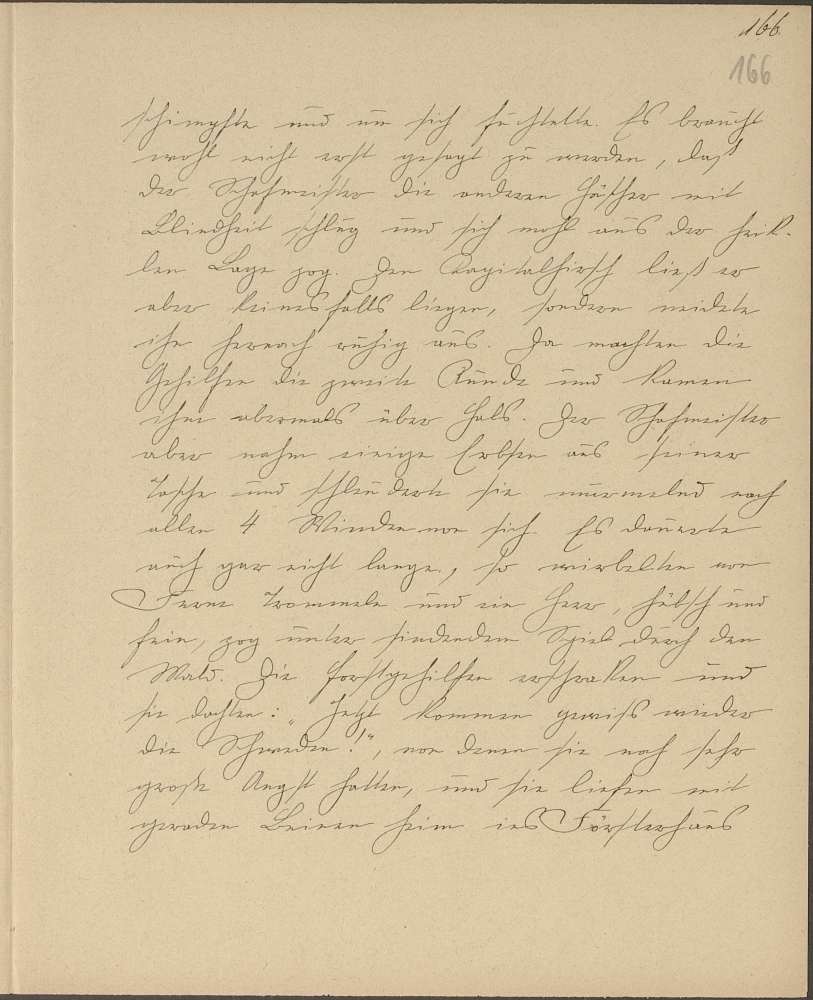 166.
166
schimpfte und um sich fuchtelte. Es braucht
wohl nicht erst gesagt zu werden, daß
der Schafmeister die anderen Häscher mit
Blindheit schlug und sich wohl aus der heik-
len Lage zog. Den Kapitalhirsch ließ er
aber keinesfalls liegen, sondern weidete
ihn hernach ruhig aus. Da machten die
Gehilfen die zweite Runde und kamen
ihm abermals über Hals. Der Schafmeister
aber nahm einige Erbsen aus seiner
Tasche und schleuderte sie murmelnd nach
allen 4 Winden von sich. Es dauerte
auch gar nicht lange, so wirbelten von
Ferne Trommeln und ein Heer, hübsch und
fein, zog unter Spiel durch den
Wald. Die Forstgehilfen erschraken und
sie dachten: „Jetzt kommen gewiß wieder
die Schweden!", von denen sie noch sehr
große Angst hatten, und sie liefen mit
geraden Beinen heim ins Försterhaus